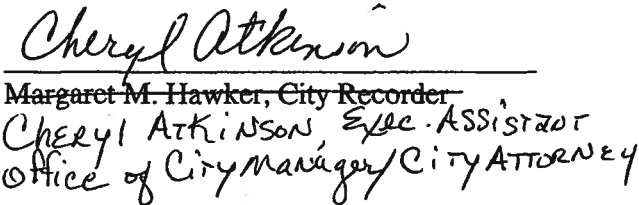 Cheryl Atkinson
Margaret M. Hawker, City Recorder
CHERYL ATKINSON, Exec. ASSISTANT
Office of City Manager/City ATTORNEY